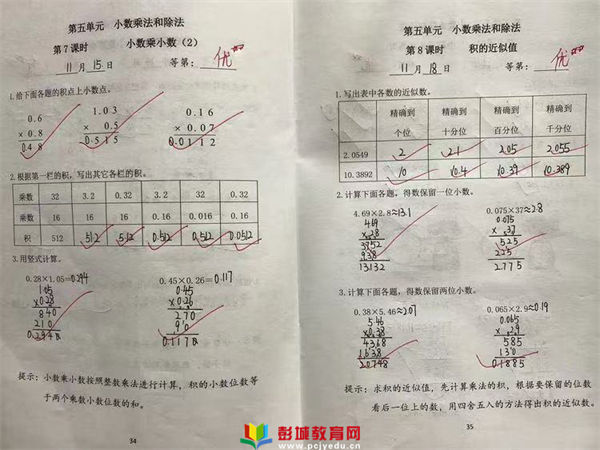 第五单元 小数乘法和除法
第7课时 小数乘小数(2)
11月15日 等第: 优
1.给下面各题的积点上小数点。
0.6 1.03 0.16
× 0.8 × 0.5 × 0.07
0.48 0.515 0.0112
2.根据第一栏的积,写出其它各栏的积。
乘数 32 3.2 0.32 3.2 32 0.32
乘数 16 16 16 0.16 0.016 0.16
积 512 51.2 5.12 0.512 0.512 0.0512
3.用竖式计算。
0.28×1.05=0.294 0.45×0.26=0.117
1.05 0.45
×0.28 ×0.26
840 270
210 90
0.2940 0.1170
提示:小数乘小数按照整数乘法进行计算,积的小数位数等
于两个乘数小数位数的和。
34
第五单元 小数乘法和除法
第8课时 积的近似值
11月18日 等第: 优
1.写出表中各数的近似数。
精确到 精确到 精确到 精确到
个位 十分位 百分位 千分位
2.0549 2 2.1 2.05 2.055
10.3892 10 10.4 10.39 10.389
2.计算下面各题,得数保留一位小数。
4.69×2.8≈13.1 0.075×37≈2.8
4.69 0.075
×2.8 × 37
3752 525
938 225
13132 2.775
3.计算下面各题,得数保留两位小数。
0.38×5.46≈2.07 0.065×2.9≈0.19
5.46 0.065
×0.38 ×2.9
4368 585
1638 130
2.0748 0.1885
提示:求积的近似值,先计算乘法的积,根据要保留的位数
看后一位上的数,用四舍五入的方法得出积的近似数。
35
彭城教育网
www.pcjyedu.cn